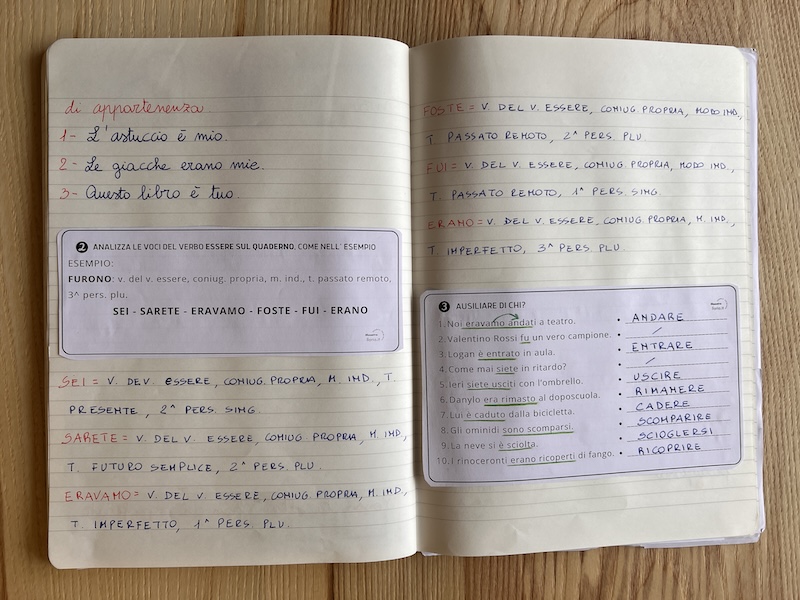 di appartenenza
1- L'astuccio è mio.
2- Le giacche erano mie.
3- Questo libro è tuo.
2 ANALIZZA LE VOCI DEL VERBO ESSERE SUL QUADERNO, COME NELL' ESEMPIO
ESEMPIO:
FURONO: v. del v. essere, coniug. propria, m. ind., t. passato remoto,
3^ pers. plu.
SEI - SARETE - ERAVAMO - FOSTE - FUI - ERANO
SEI = V. DEV. ESSERE, CONIUG. PROPRIA, M. IND., T.
PRESENTE, 2^ PERS. SING.
SARETE = V. DEL V. ESSERE, CONIUG PROPRIA, M. IND.,
T. FUTURO SEMPLICE, 2^ PERS. PLU.
ERAVAMO = V. DEL V. ESSERE, CONIUG. PROPRIA, M. IND.,
T. IMPERFETTO, 1^ PERS. PLU.
FOSTE = V. DEL V. ESSERE, CONIUG. PROPRIA, MODO IND.,
T. PASSATO REMOTO, 2^ PERS. PLU.
FUI = V. DEL V. ESSERE, CONIUG. PROPRIA, MODO IND.,
T. PASSATO REMOTO, 1^ PERS. SING.
ERANO = V. DEL V. ESSERE, CONIUG. PROPRIA, M. IND.,
T. IMPERFETTO, 3^ PERS. PLU.
3 AUSILIARE DI CHI?
1. Noi eravamo andati a teatro. • ANDARE
2. Valentino Rossi fu un vero campione. • /
3. Logan è entrato in aula. • ENTRARE
4. Come mai siete in ritardo? • /
5. Ieri siete usciti con l'ombrello. • USCIRE
6. Danylo era rimasto al doposcuola. • RIMANERE
7. Lui è caduto dalla bicicletta. • CADERE
8. Gli ominidi sono scomparsi. • SCOMPARIRE
9. La neve si è sciolta. • SCIOGLERSI
10. I rinoceronti erano ricoperti di fango. • RICOPRIRE